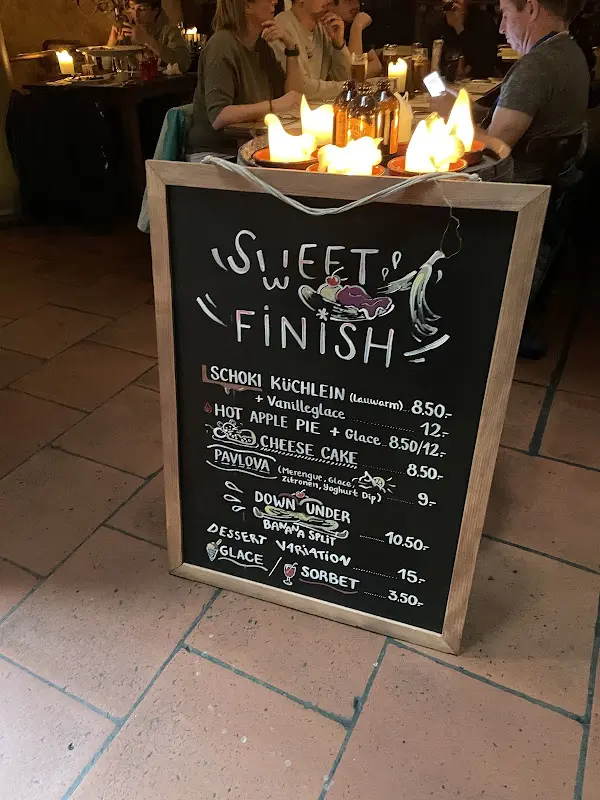 SWEET
FINISH
SCHOKI KÜCHLEIN (Lauwarm) 8.50.-
+ Vanilleglace ........ 12.-
HOT APPLE PIE + Glace.. 8.50/12.-
CHEESE CAKE ...... 8.50.-
PAVLOVA (Merengue, Glace, Zitronen, Yoghurt Dip) ..... 9.-
DOWN UNDER
BANANA SPLIT ..... 10.50.-
DESSERT VARIATION ........ 15.-
GLACE / SORBET ...... 3.50.-